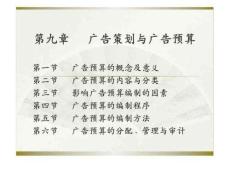 第九章 广告策划与广告预算
第一节 广告预算的概念及意义
第二节 广告预算的内容与分类
第三节 影响广告预算编制的因素
第四节 广告预算的编制程序
第五节 广告预算的编制方法
第六节 广告预算的分配、管理与审计